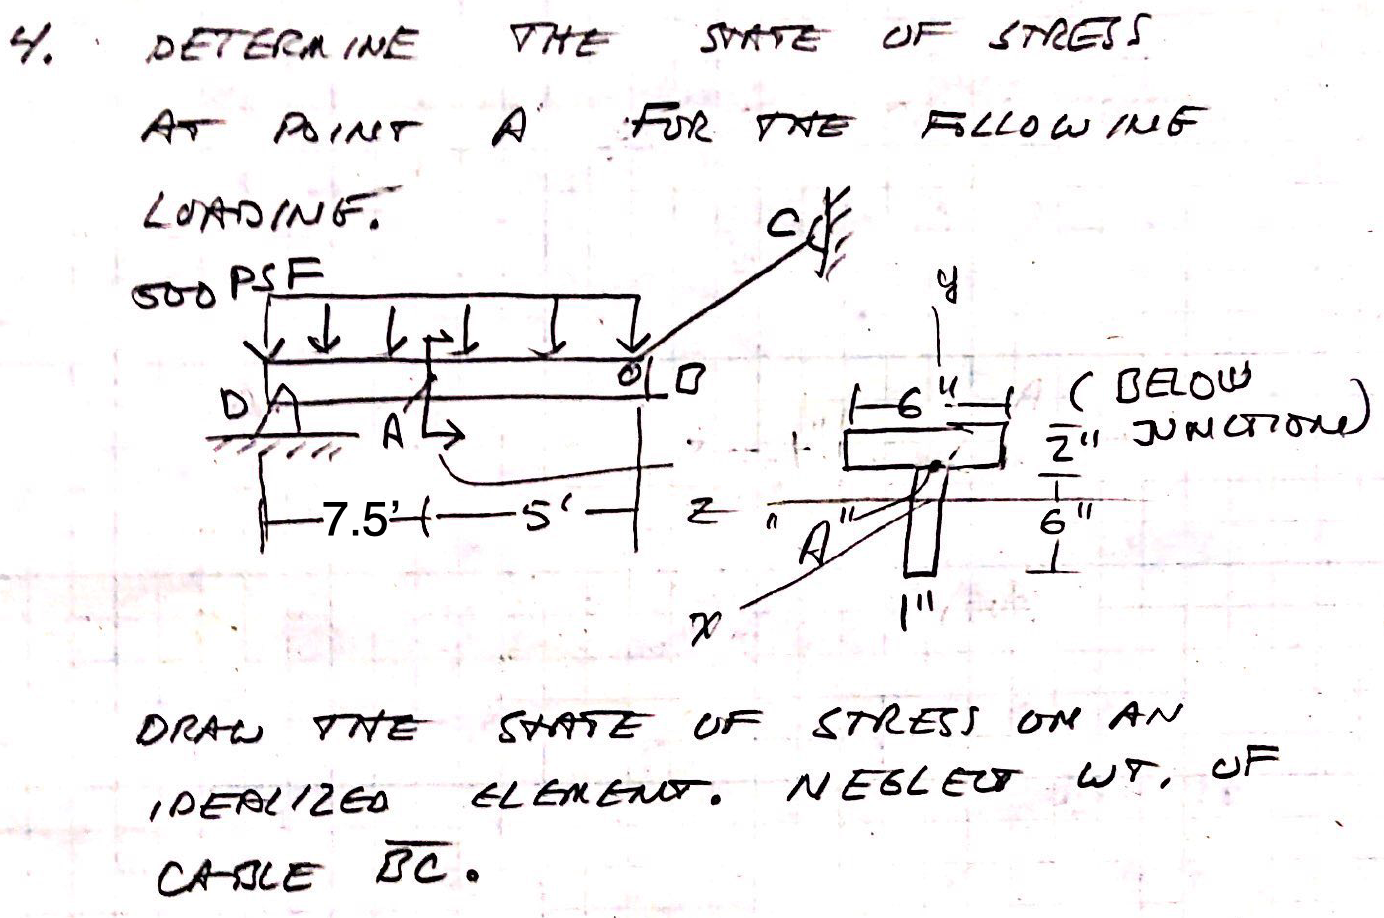 4. DETERMINE THE STATE OF STRESS
AT POINT A FOR THE FOLLOWING
LOADING.
C
500 PSF
y
D
A
B
6"
(BELOW
JUNCTION)
2"
7.5'
5'
z
"A"
6"
x
1"
DRAW THE STATE OF STRESS ON AN
IDEALIZED ELEMENT. NEGLECT WT. OF
CABLE BC.